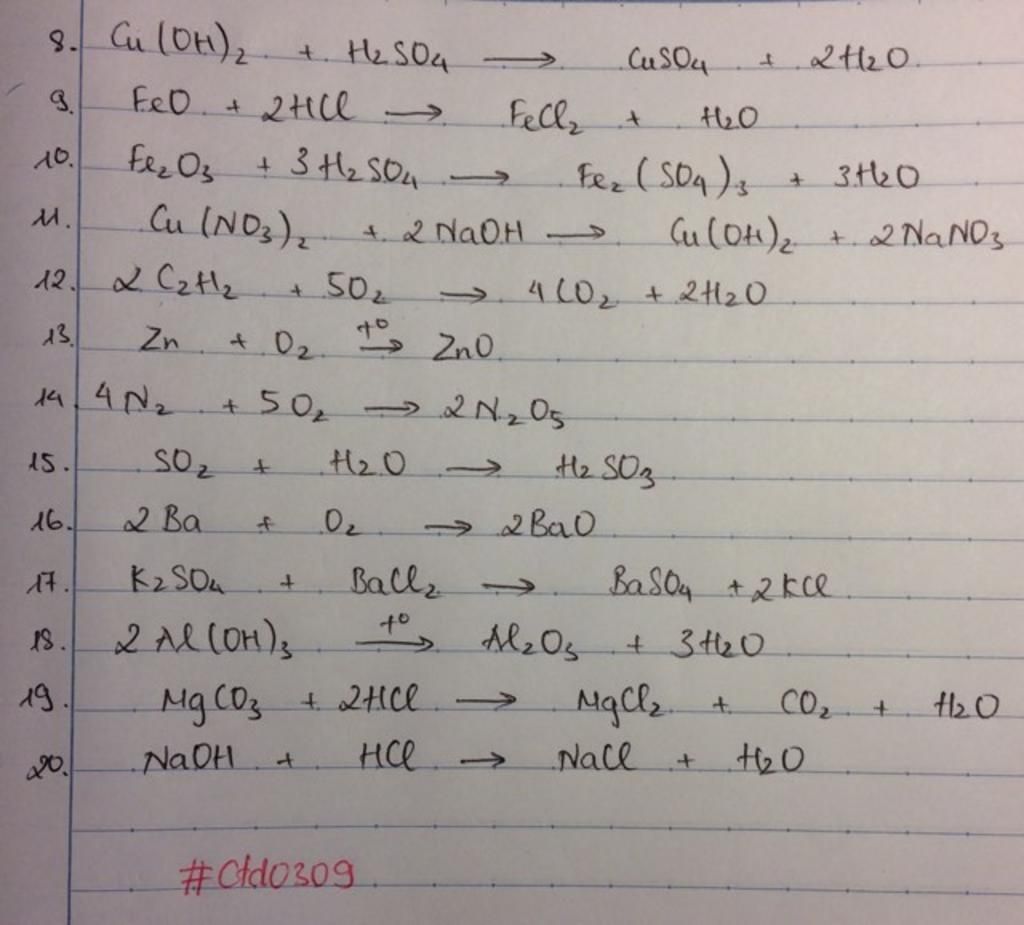 8. Cu(OH)₂ + H₂SO₄ → CuSO₄ + 2H₂O
9. FeO + 2HCl → FeCl₂ + H₂O
10. Fe₂O₃ + 3H₂SO₄ → Fe₂(SO₄)₃ + 3H₂O
11. Cu(NO₃)₂ + 2NaOH → Cu(OH)₂ + 2NaNO₃
12. 2C₂H₂ + 5O₂ → 4CO₂ + 2H₂O
13. Zn + O₂ –t°→ ZnO
14. 4N₂ + 5O₂ → 2N₂O₅
15. SO₂ + H₂O → H₂SO₃
16. 2Ba + O₂ → 2BaO
17. K₂SO₄ + BaCl₂ → BaSO₄ + 2KCl
18. 2Al(OH)₃ –t°→ Al₂O₃ + 3H₂O
19. MgCO₃ + 2HCl → MgCl₂ + CO₂ + H₂O
20. NaOH + HCl → NaCl + H₂O
#Ctd0309